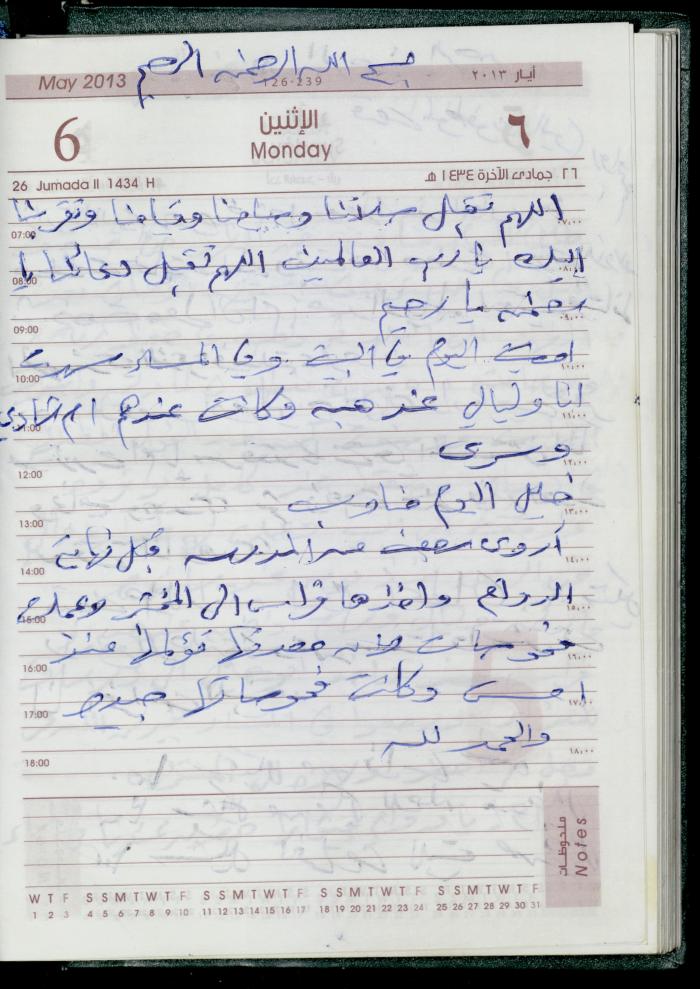 بسم الله الرحمن الرحيم
May 2013 126-239 أيار ٢٠١٣
6 الإثنين ٦
Monday
26 Jumada II 1434 H ٢٦ جمادى الآخرة ١٤٣٤ هـ
اللهم تقبل صلاتنا وصيامنا وقيامنا وتقربنا
07:00 ٠٧:٠٠
إليك يا رب العالمين اللهم تقبل دعائنا يا
08:00 ٠٨:٠٠
رحمن يا رحيم
09:00 ٠٩:٠٠
اليوم في البيت وفي المساء سهرت
10:00 ١٠:٠٠
انا وليالي عند هبه وكانت عندهم ام
11:00 ١١:٠٠
وسرى
12:00 ١٢:٠٠
خليل اليوم
13:00 ١٣:٠٠
أروى من المدرسه قبل نهاية
14:00 ١٤:٠٠
الدوام واخذها الى المختبر وعملت
15:00 ١٥:٠٠
فحوصات معدتها تؤلمها منذ
16:00 ١٦:٠٠
امس وكانت فحوصاتها جيده
17:00 ١٧:٠٠
والحمد لله
18:00 ١٨:٠٠
ملحوظات
Notes
W T F S S M T W T F S S M T W T F S S M T W T F S S M T W T F
1 2 3 4 5 6 7 8 9 10 11 12 13 14 15 16 17 18 19 20 21 22 23 24 25 26 27 28 29 30 31